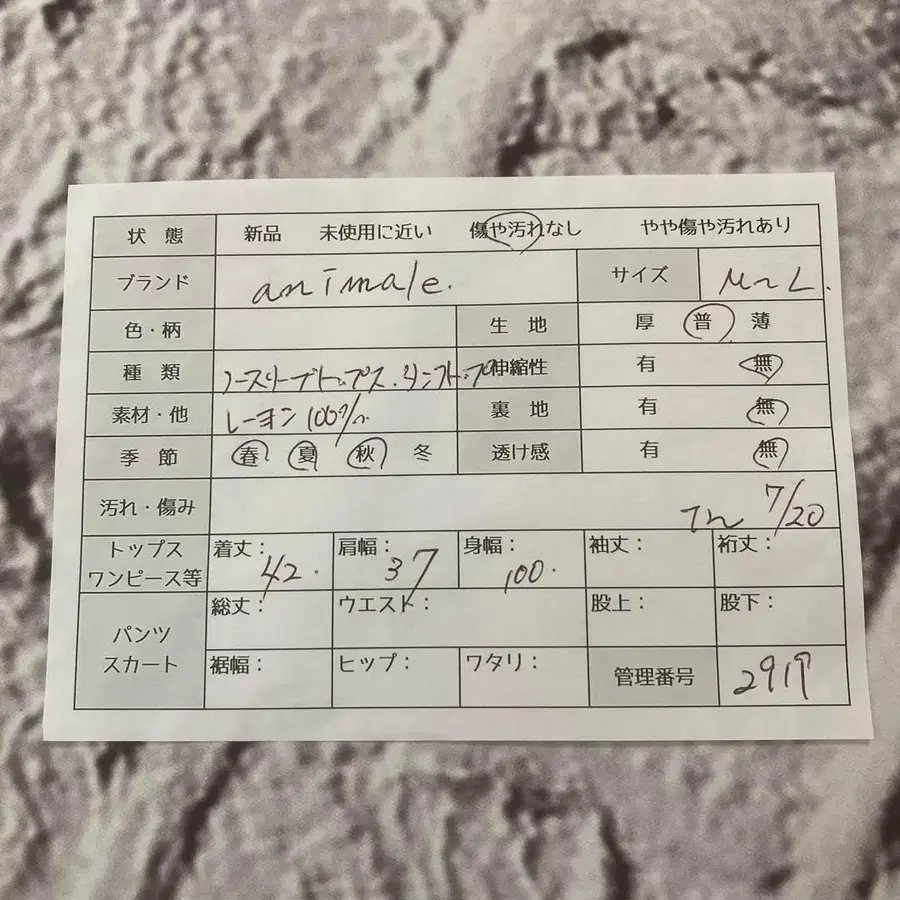 状態 新品 未使用に近い 傷や汚れなし やや傷や汚れあり
ブランド animale. サイズ M~L.
色・柄 生地 厚 普 薄
種類 ノースリーブトップス・タンクトップ 伸縮性 有 無
素材・他 レーヨン100% 裏地 有 無
季節 春 夏 秋 冬 透け感 有 無
汚れ・傷み 7/20
トップス ワンピース等 着丈: 42. 肩幅: 37 身幅: 100. 袖丈: 裄丈:
パンツ スカート 総丈: ウエスト: 股上: 股下:
裾幅: ヒップ: ワタリ: 管理番号